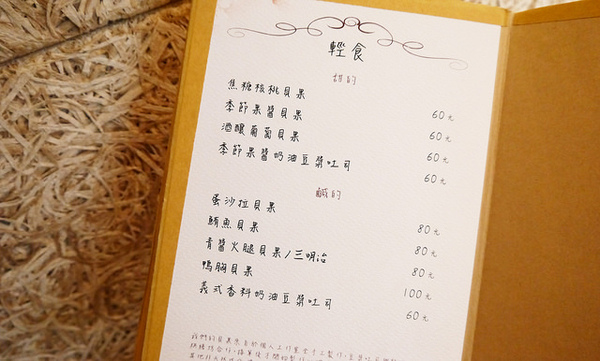 輕食
甜的
焦糖核桃貝果 60元
季節果醬貝果 60元
酒釀葡萄貝果 60元
季節果醬奶油豆漿吐司 60元
鹹的
蛋沙拉貝果 80元
鮪魚貝果 80元
青醬火腿貝果/三明治 80元
鴨胸貝果 100元
義式香料奶油豆漿吐司 60元